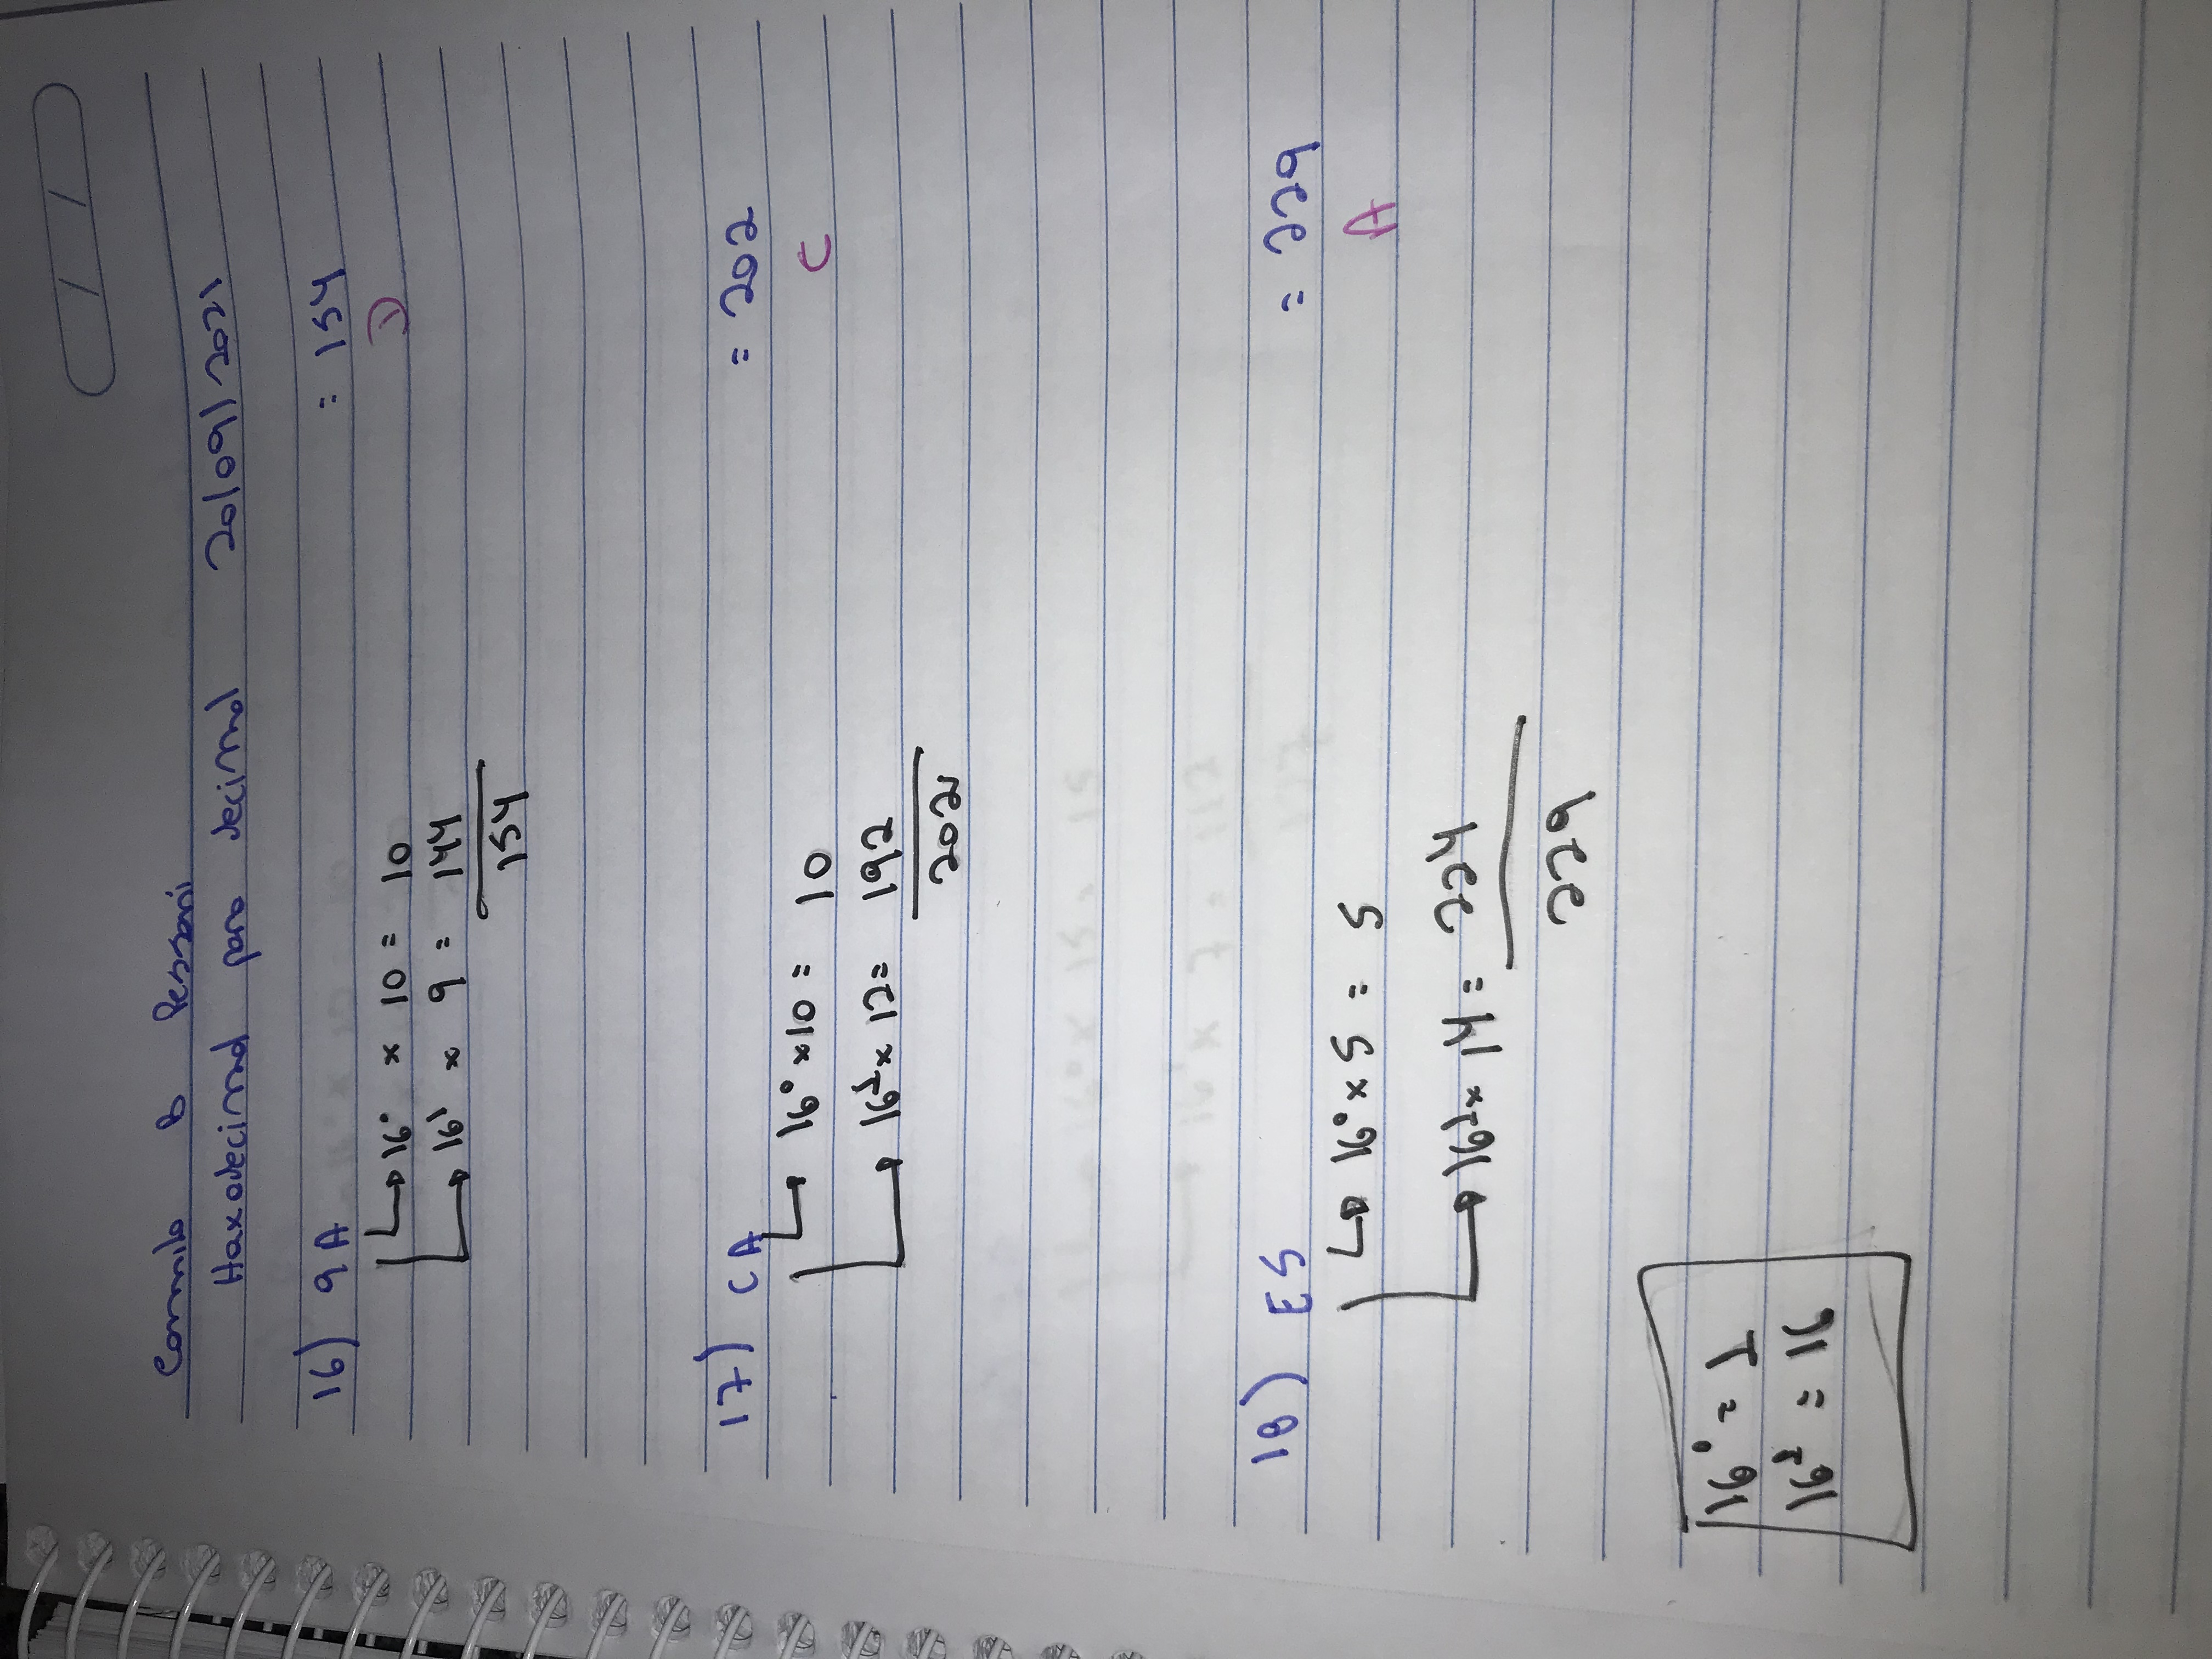 Camila B Pessani
Haxadecimal para decimal 20/09/2021
16) 9A = 154
16⁰ x 10 = 10 D
16¹ x 9 = 144
154
17) CA = 202
16⁰ x 10 = 10 C
16¹ x 12 = 192
202
18) E5 = 229
16⁰ x 5 = 5 A
16¹ x 14 = 224
229
16⁰ = 1
16¹ = 16